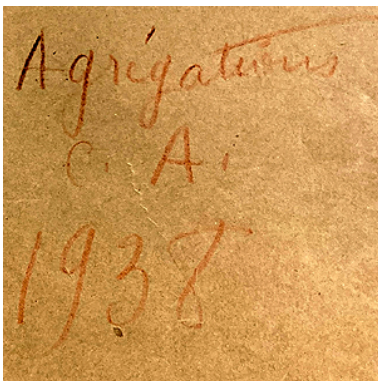 Agrégations
C. A.
1938